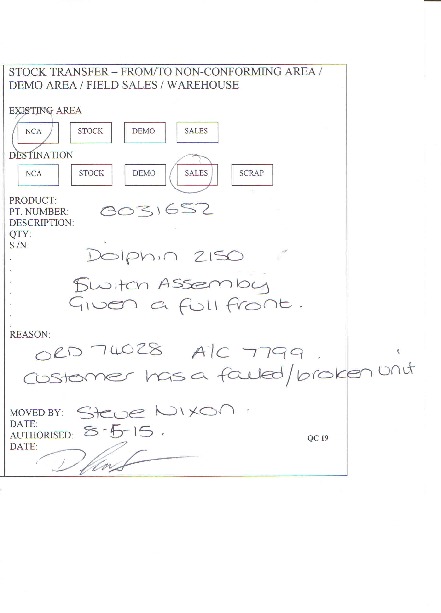 STOCK TRANSFER – FROM/TO NON-CONFORMING AREA /
DEMO AREA / FIELD SALES / WAREHOUSE
EXISTING AREA
NCA STOCK DEMO SALES
DESTINATION
NCA STOCK DEMO SALES SCRAP
PRODUCT:
PT. NUMBER: 0031652
DESCRIPTION:
QTY:
S/N
Dolphin 2150
Switch Assembly
Given a full front.
REASON:
ORD 74028 A/C 7799.
Customer has a failed/broken unit
MOVED BY: Steve Nixon.
DATE:
AUTHORISED: 8-5-15.
DATE:
QC 19